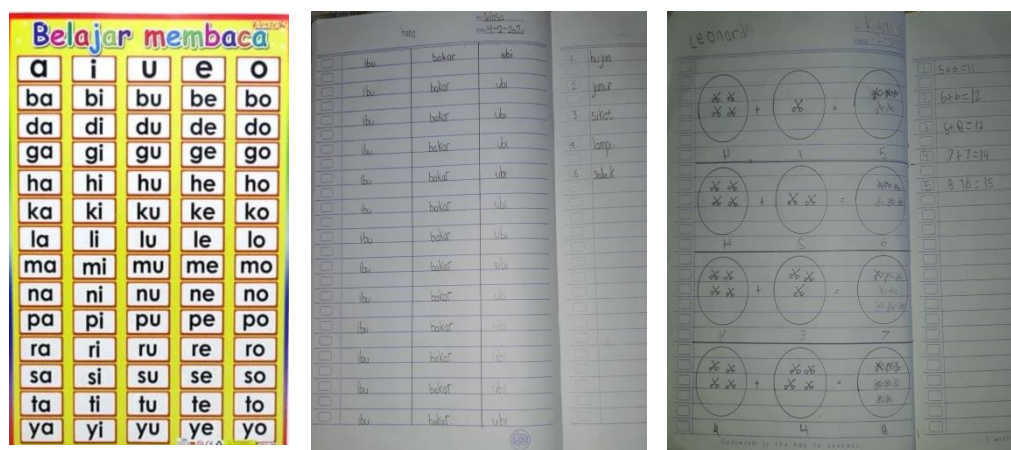 Belajar membaca
a i u e o
ba bi bu be bo
da di du de do
ga gi gu ge go
ha hi hu he ho
ka ki ku ke ko
la li lu le lo
ma mi mu me mo
na ni nu ne no
pa pi pu pe po
ra ri ru re ro
sa si su se so
ta ti tu te to
ya yi yu ye yo
Selasa
ibu bakar ubi
ibu bakar ubi
ibu bakar ubi
ibu bakar ubi
ibu bakar ubi
ibu bakar ubi
ibu bakar ubi
ibu bakar ubi
ibu bakar ubi
ibu bakar ubi
ibu bakar ubi
ibu bakar ubi
ibu bakar ubi
1 hujan
2 jamur
3 sikat
4 lampu
5 sabuk
Leonardo
+ =
4 1 5
+ =
4 6
+ =
4 3 7
+ =
4 4 8
1 5+6=11
2 6+6=12
3
4 7+7=14
5
Optimism is the key to success.